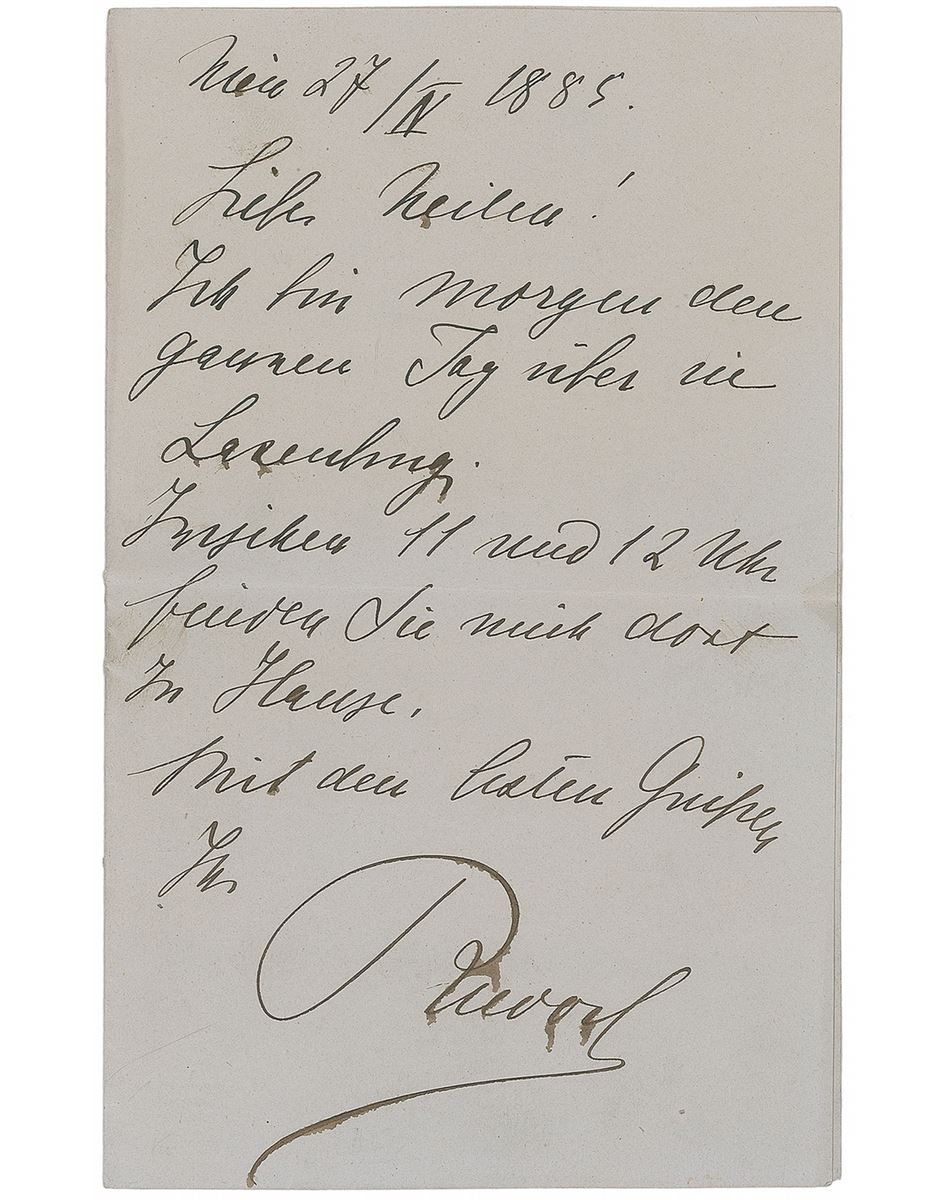 Wien 27/IV 1885.
Lieber Weilen!
Ich bin morgen den
ganzen Tag über in
Laxenburg.
Zwischen 11 und 12 Uhr
finden Sie mich dort
zu Hause.
Mit den besten Grüßen
Ihr
Rudolf